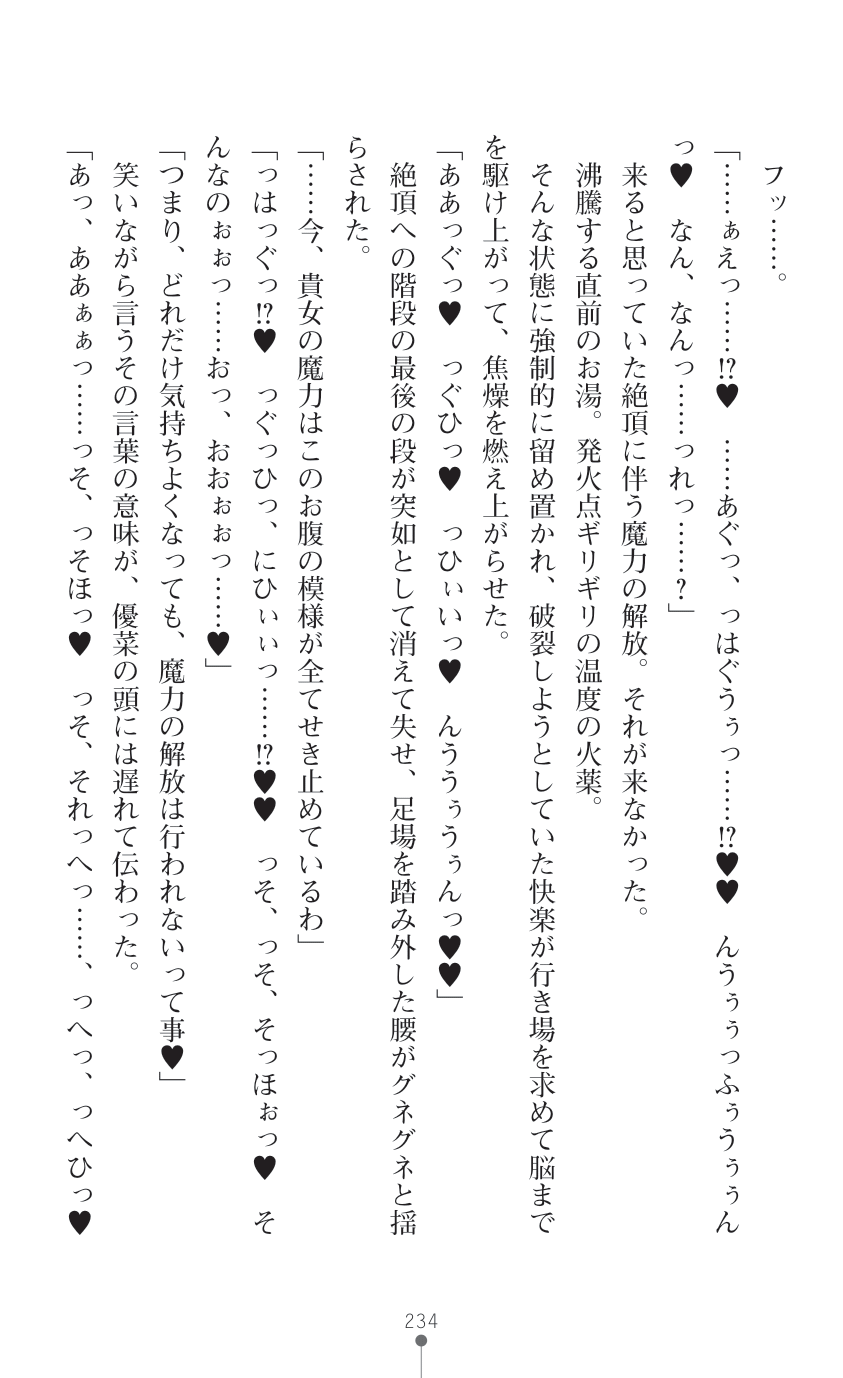 フッ……。
「……ぁえっ……!?♥　……あぐっ、っはぐうぅっ……!?♥♥　んうぅぅっふぅうぅぅん
っ♥　なん、なんっ……っれっ……？」
来ると思っていた絶頂に伴う魔力の解放。それが来なかった。
沸騰する直前のお湯。発火点ギリギリの温度の火薬。
そんな状態に強制的に留め置かれ、破裂しようとしていた快楽が行き場を求めて脳まで
を駆け上がって、焦燥を燃え上がらせた。
「ああっぐっ♥　っぐひっ♥　っひぃいっ♥　んううぅうぅんっ♥♥」
絶頂への階段の最後の段が突如として消えて失せ、足場を踏み外した腰がグネグネと揺
らされた。
「……今、貴女の魔力はこのお腹の模様が全てせき止めているわ」
「っはっぐっ!?♥　っぐっひっ、にひぃぃっ……!?♥♥　っそ、っそ、そっほぉっ♥　そ
んなのぉぉっ……おっ、おおぉぉっ……♥」
「つまり、どれだけ気持ちよくなっても、魔力の解放は行われないって事♥」
笑いながら言うその言葉の意味が、優菜の頭には遅れて伝わった。
「あっ、ああぁぁっ……っそ、っそほっ♥　っそ、それっへっ……、っへっ、っへひっ♥
234